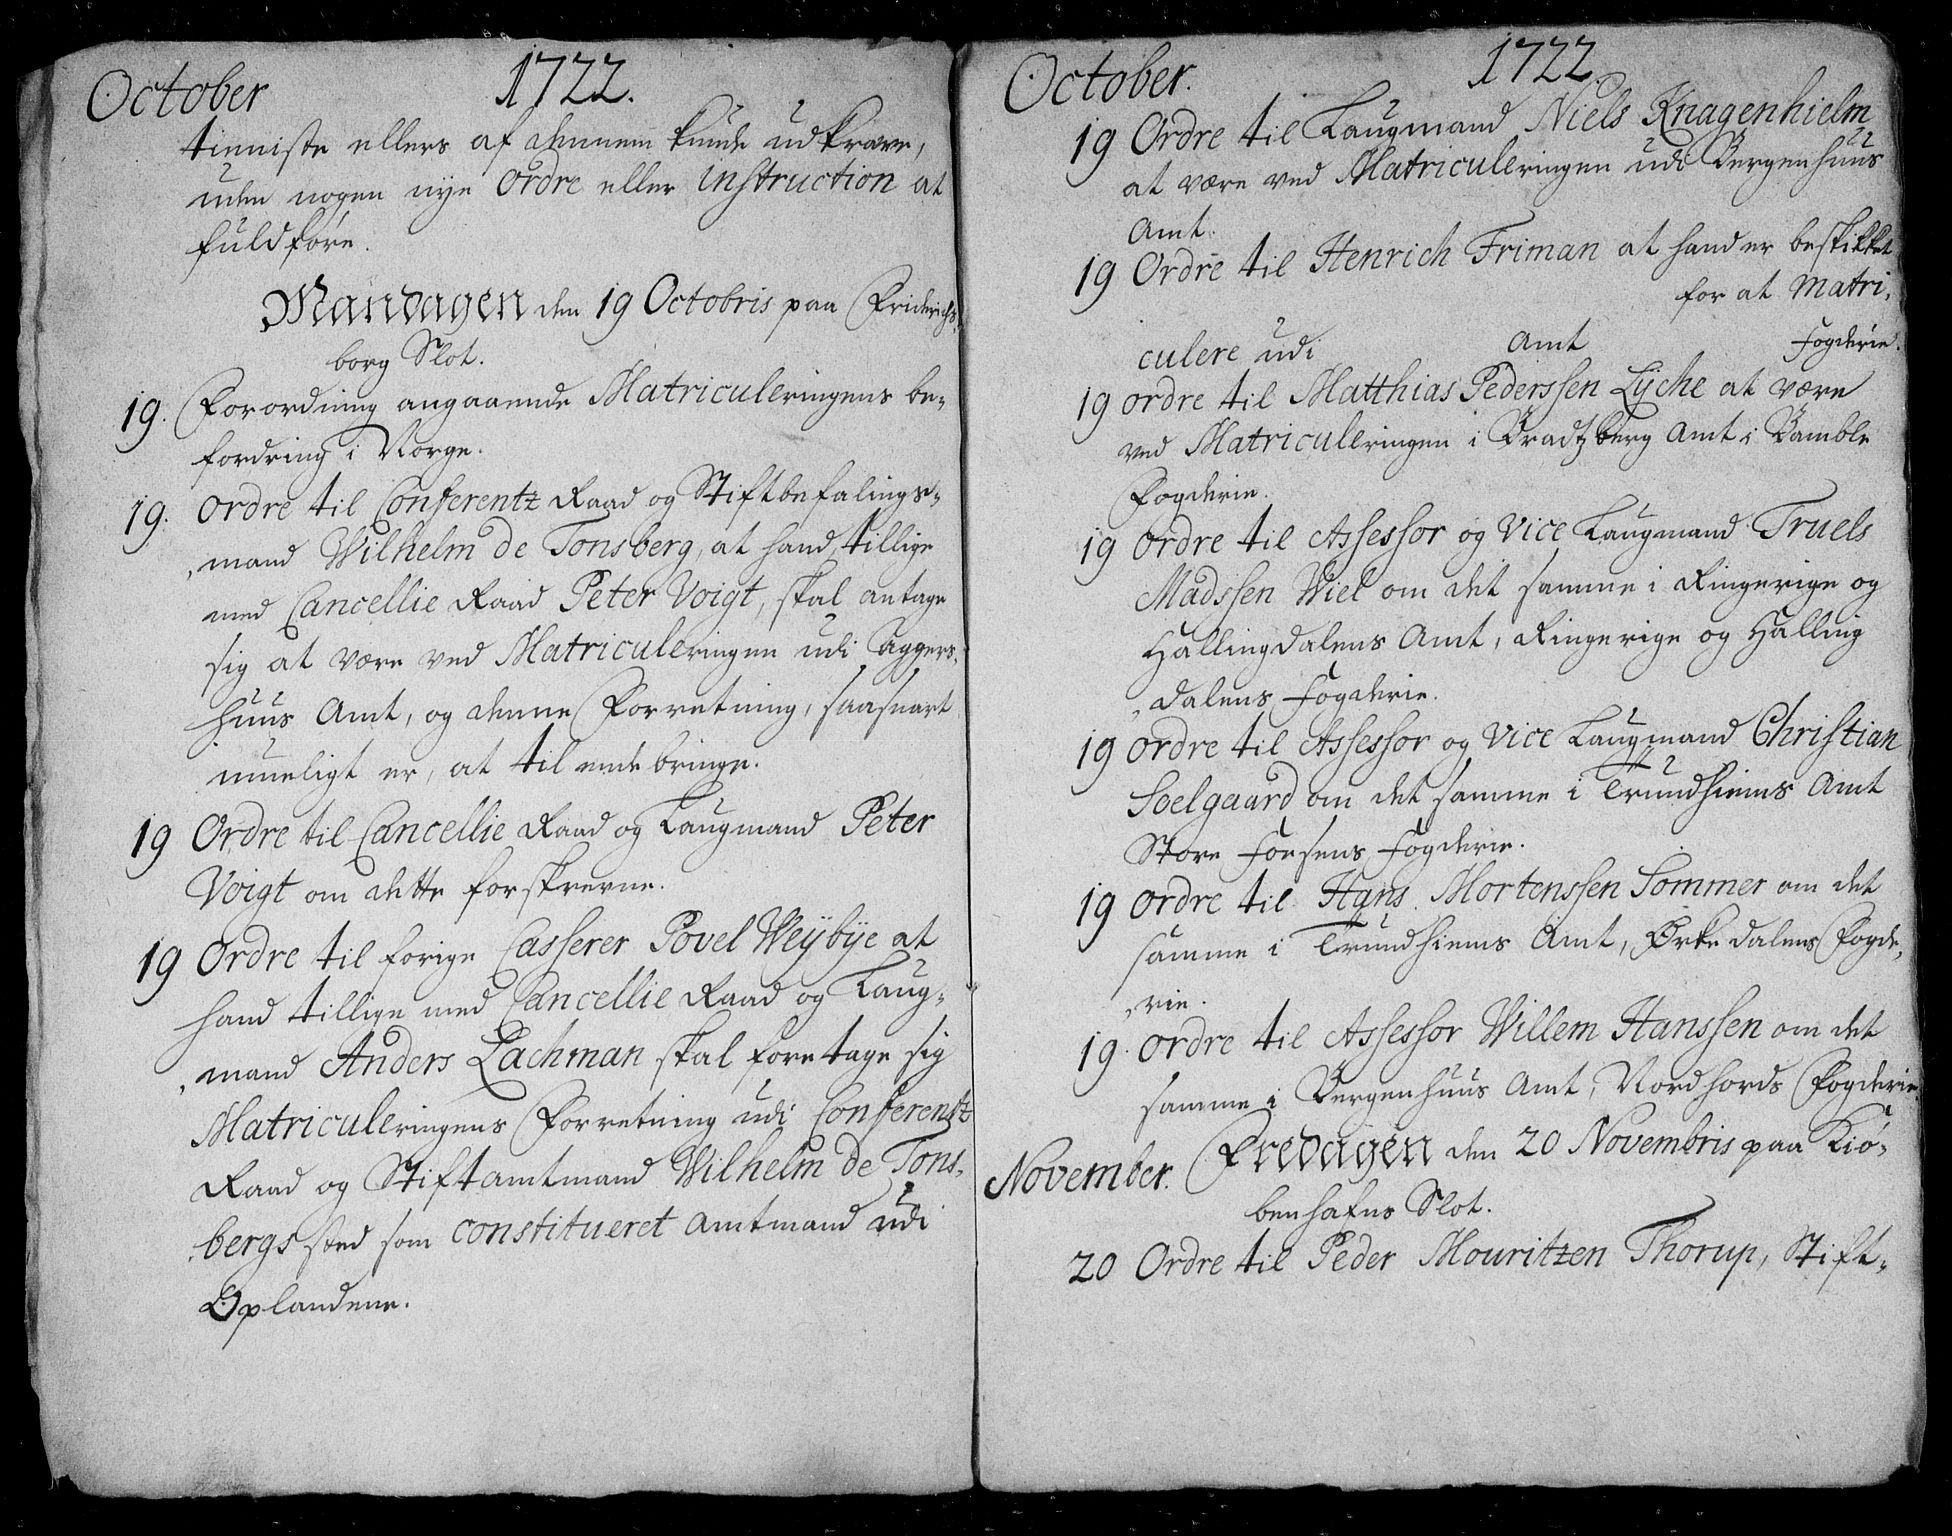 October 1722.
tienniste ellers af dennem kunde udkræve,
uden nogen nye Ordre eller Instruction at
fuldføre.
Mandagen den 19 Octobris paa Friderichs,
borg Slot.
19. Forordning angaaende Matriculeringens be-
fordring i Norge.
19. Ordre til Conferentz Raad og Stiftbefalings-
mand Wilhelm de Tonsberg, at hand, tillige
med Cancellie Raad Peter Voigt, skal antage
sig at være ved Matriculeringen udi Aggers,
huus Amt, og denne Forretning, saasnart
mueligt er, at til ende bringe.
19 Ordre til Cancellie Raad og Laugmand Peter
Voigt om dette forskrevne.
19 Ordre til forige Casserer Povel Weÿbÿe at
hand tillige med Cancellie Raad og Laug-
mand Anders Lachman skal foretage sig
Matriculeringens Forretning udi Conferentz
Raad og Stiftamtmand Wilhelm de Tons,
bergs sted som constitueret Amtmand udi
Oplandene.
October. 1722.
19 Ordre til Laugmand Niels Knagenhielm
at være ved Matriculeringen udi Bergenhuus
Amt.
19 Ordre til Henrich Friman at hand er beskikket
for at Matri,
culere udi Amt Fogderie.
19 Ordre til Matthias Pederssen Lÿche at være
ved Matriculeringen i Bradtzberg Amt i Bamble
Fogderie.
19 Ordre til Assessor og Vice Laugmand Truels
Madssen Wiel om det samme i Ringerige og
Hallingdalens Amt, Ringerige og Halling
dalens Fogderie.
19 Ordre til Assessor og Vice Laugmand Christian
Soelgaard om det samme i Trundhiems Amt
Store Foesens Fogderie.
19 Ordre til Hans Mortenssen Sommer om det
samme i Trundhiems Amt, Ørkedalens Fogde,
rie.
19. Ordre til Assessor Willem Hanssen om det
samme i Bergenhuus Amt, Nordhords Fogderie
November. Fredagen den 20 Novembris paa Kiø-
benhafns Slot.
20 Ordre til Peder Mouritzen Thorup, Stift-